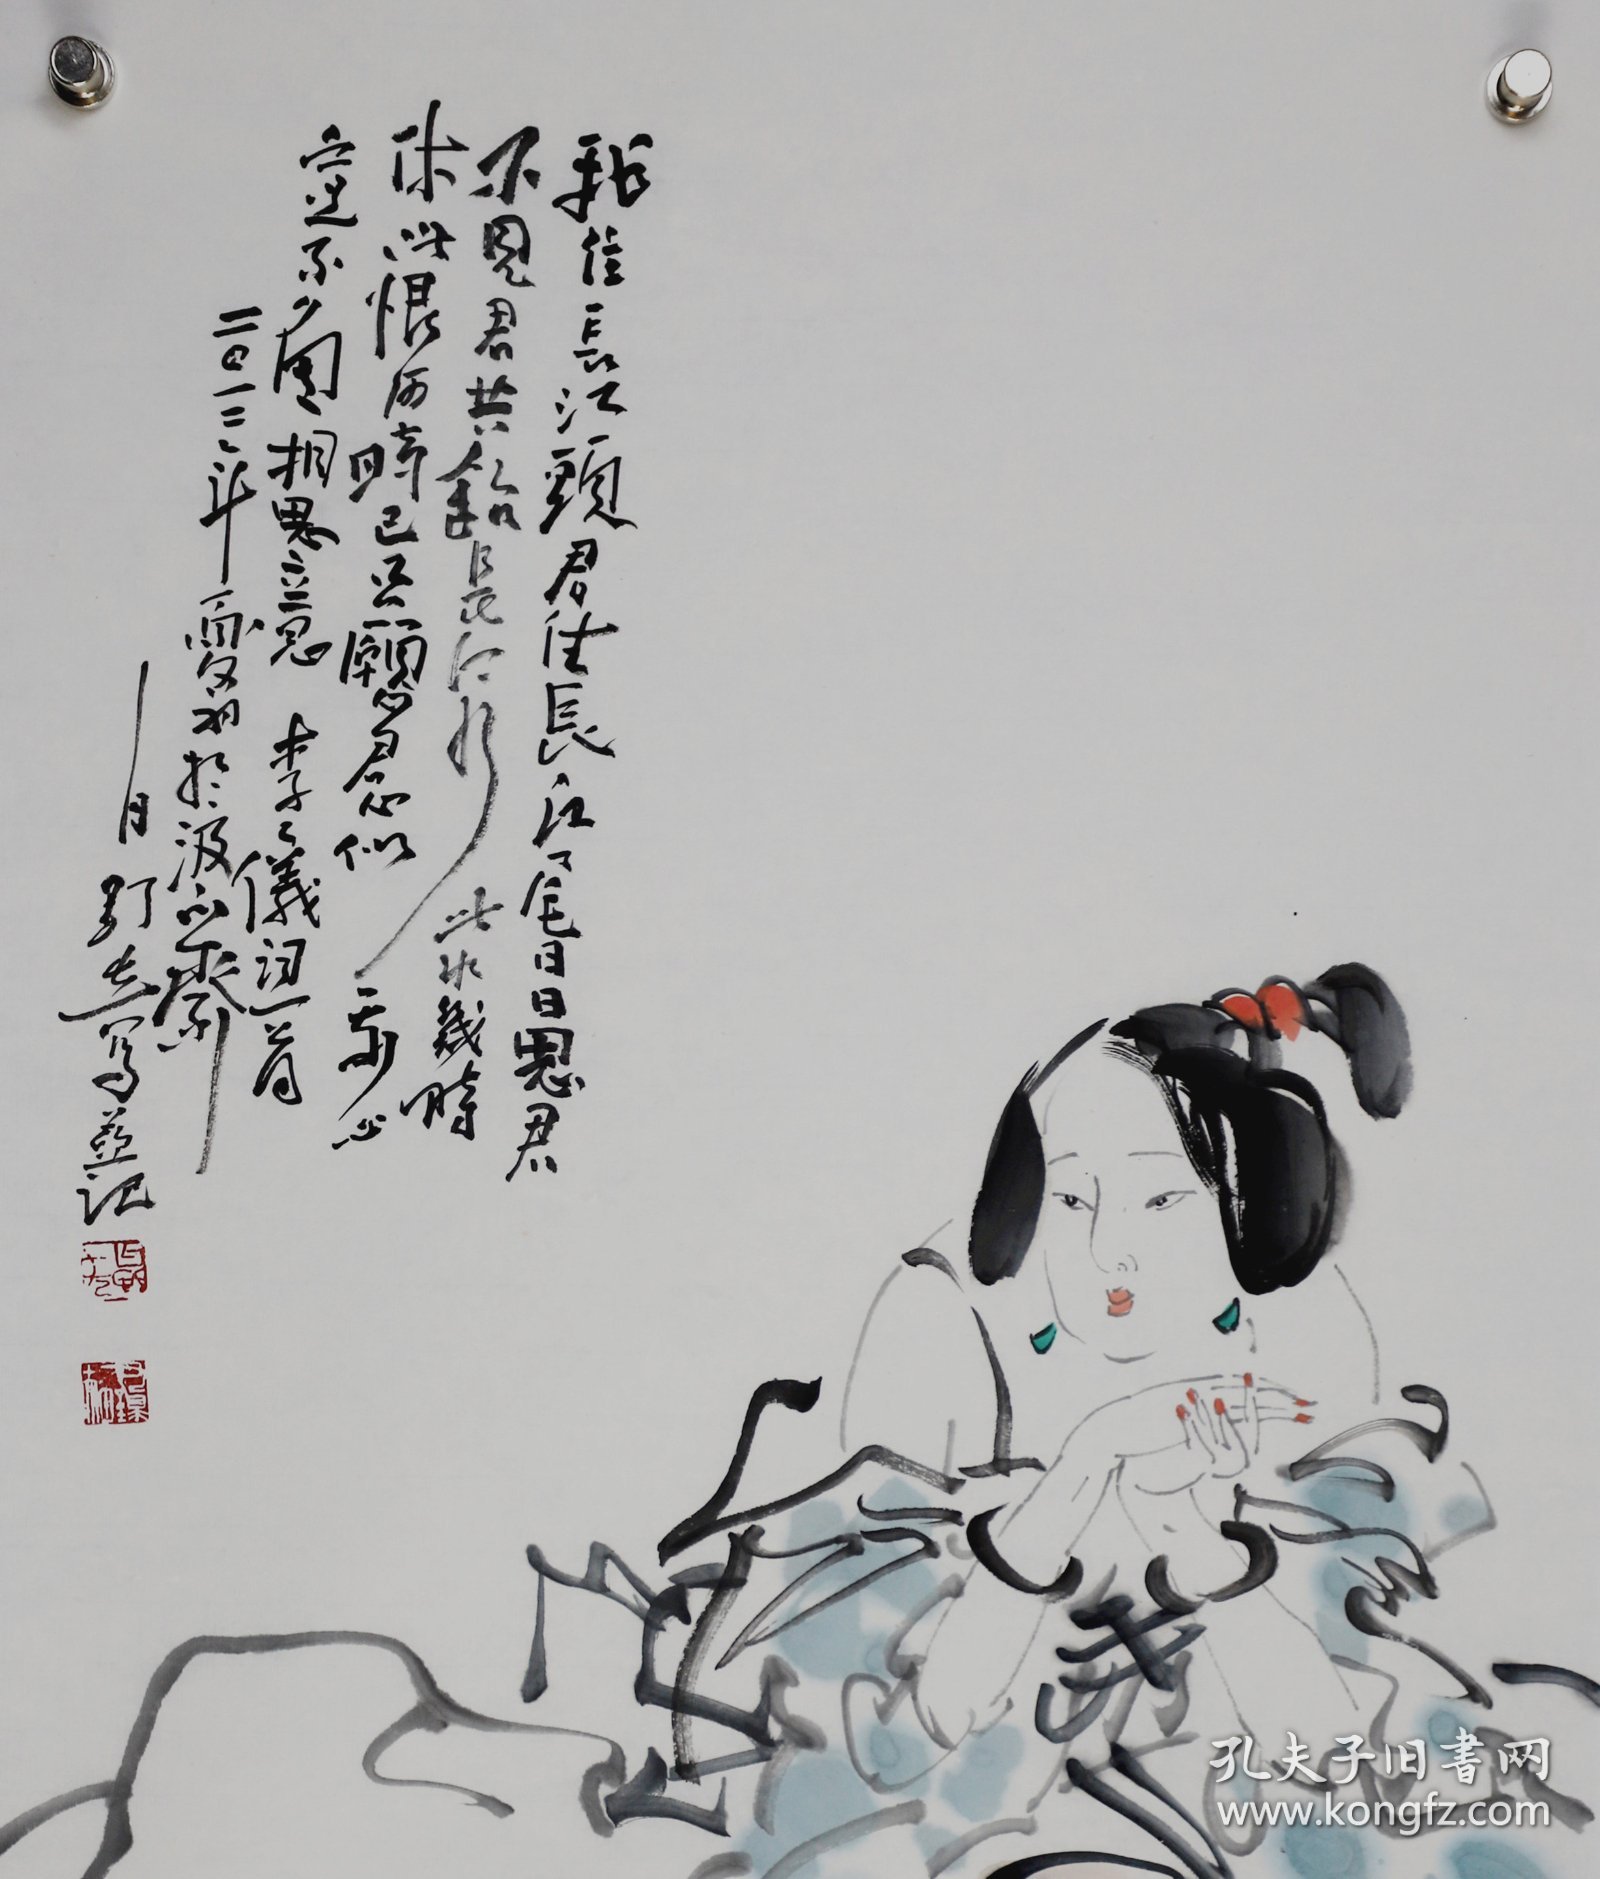 我住長江頭君住長江尾日日思君
不見君共飲長江水此水幾時
休此恨何時已只願君心似我心
定不負相思意 李之儀詞一首
二〇一二年夏於汲齋
月寫並記
孔夫子旧书网
www.kongfz.com